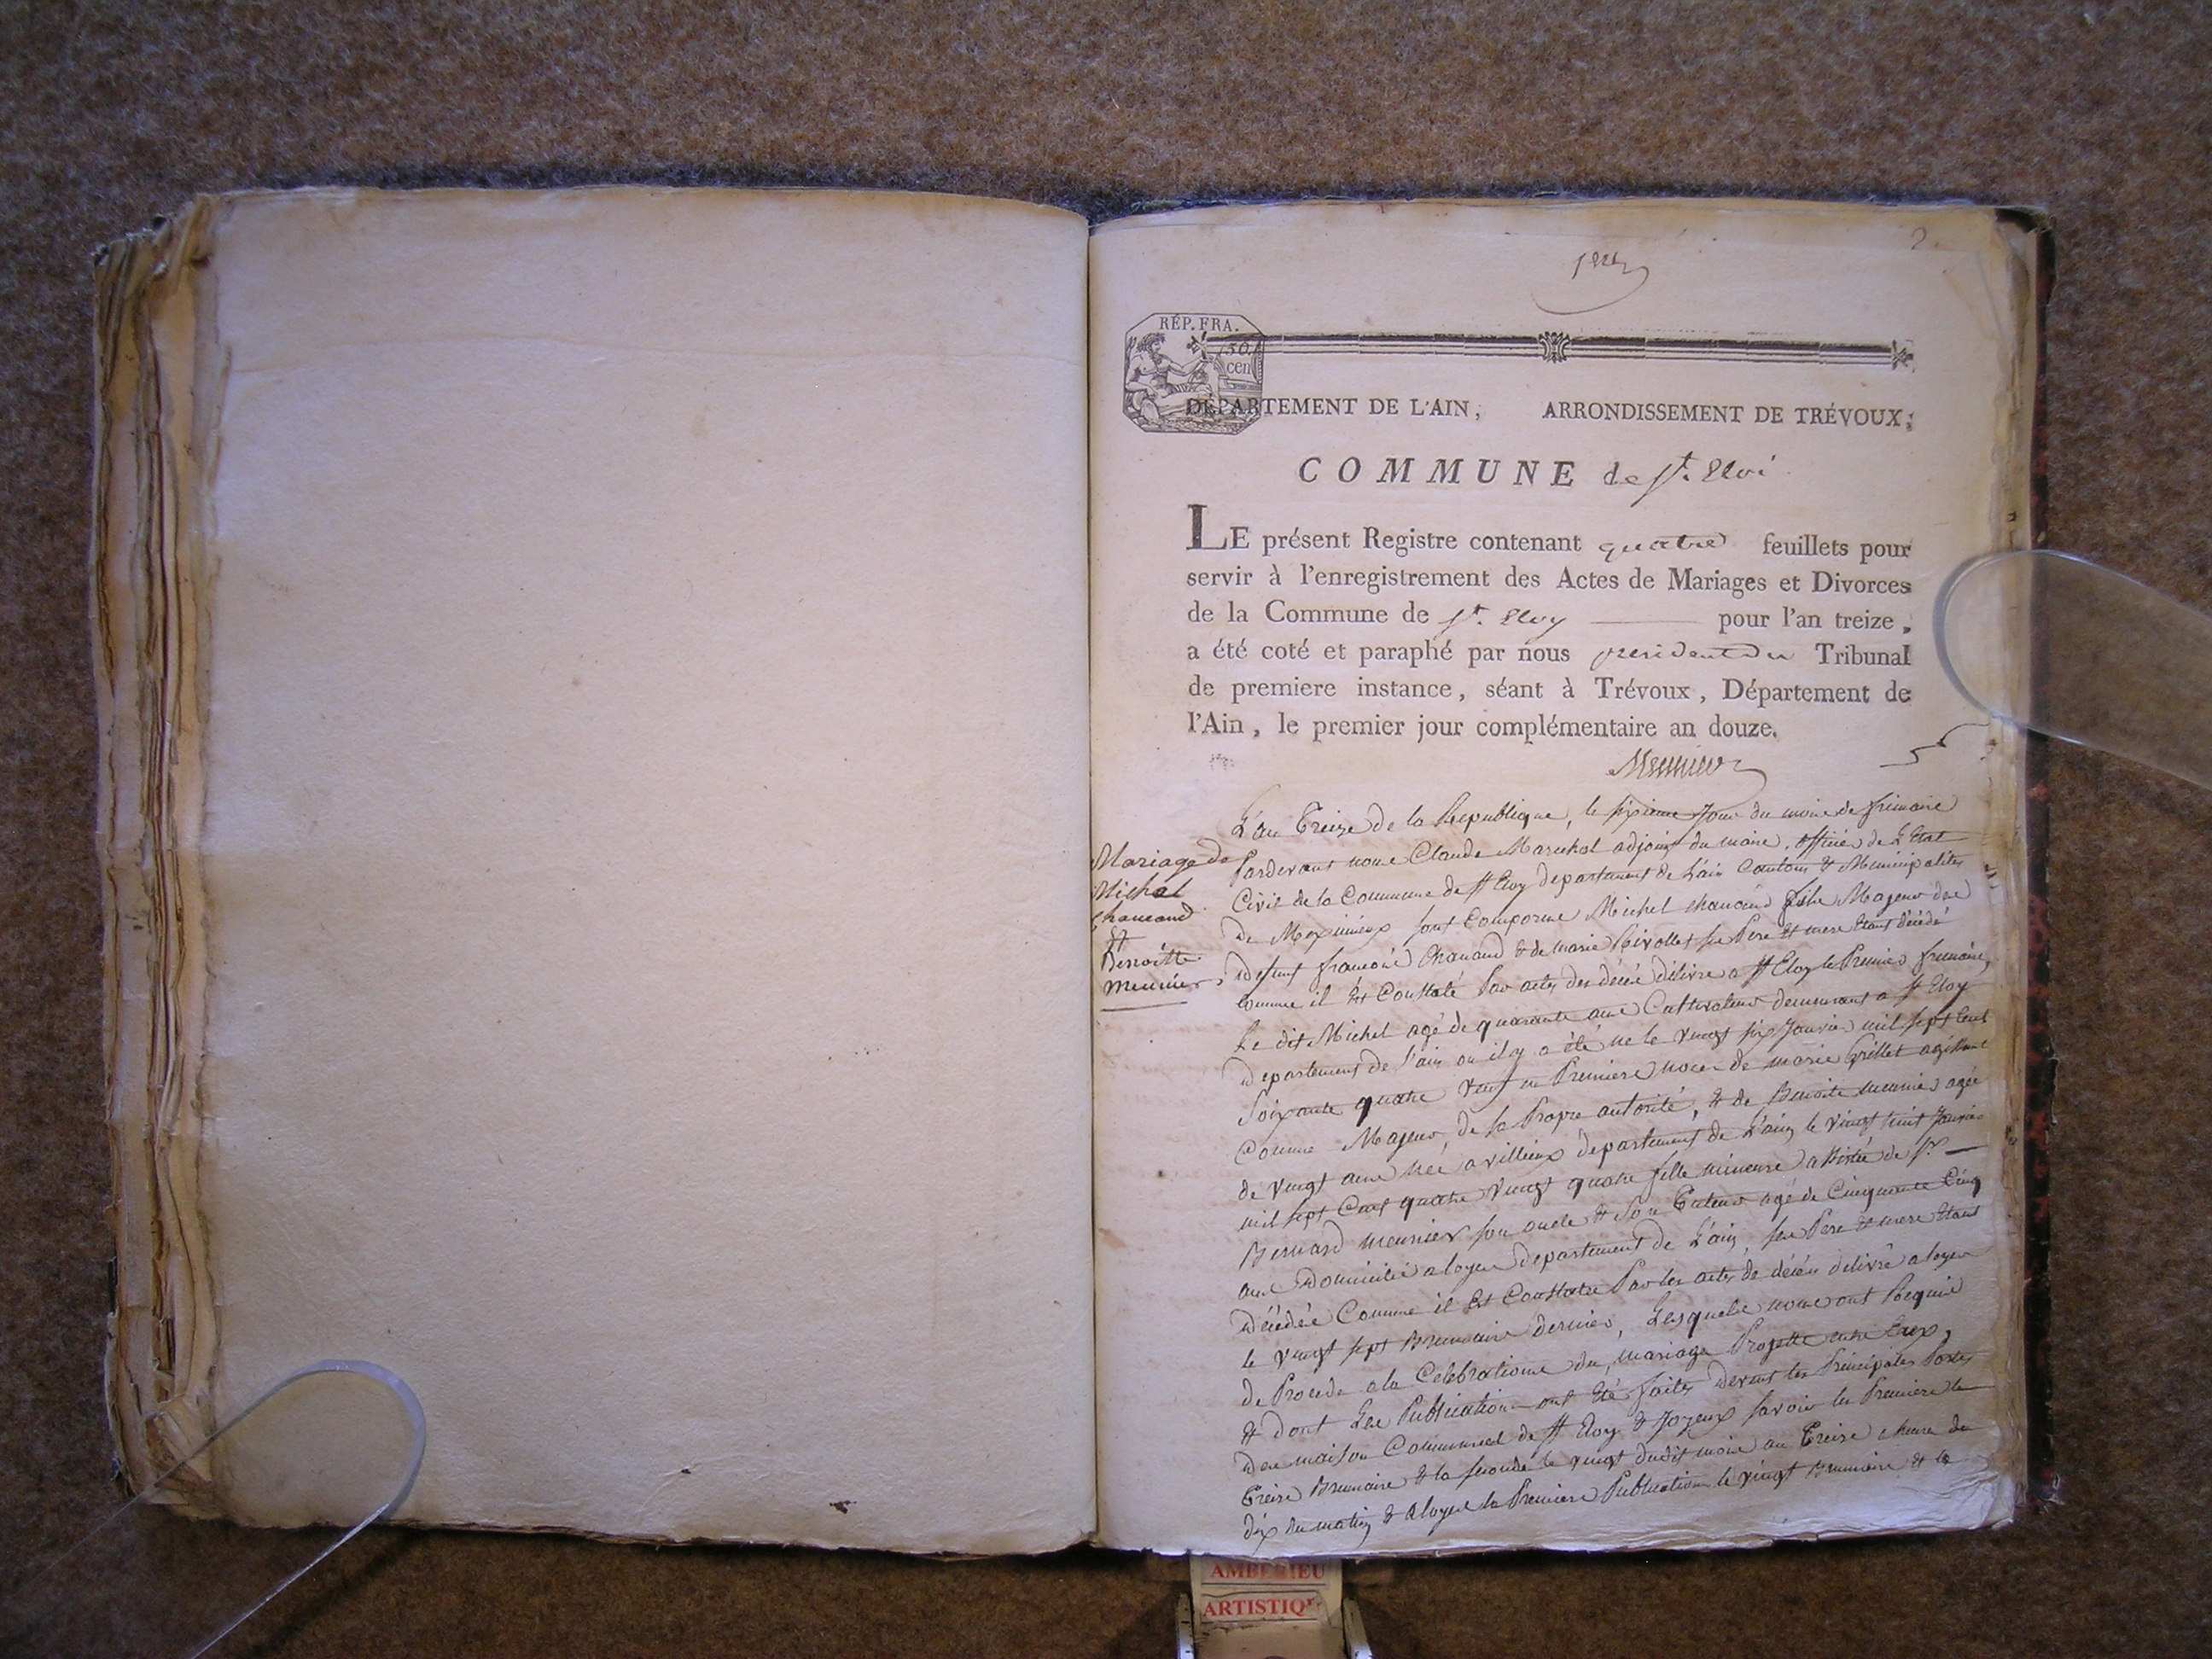 2
RÉP. FRA.
50
cen
DÉPARTEMENT DE L'AIN, ARRONDISSEMENT DE TRÉVOUX;
COMMUNE de St. Eloi
LE présent Registre contenant quatre feuillets pour
servir à l'enregistrement des Actes de Mariages et Divorces
de la Commune de St. Eloy pour l'an treize,
a été coté et paraphé par nous president du Tribunal
de premiere instance, séant à Trévoux, Département de
l'Ain, le premier jour complémentaire an douze.
Mariage de
Michel
Chanand
Et
Benoitte
meunier
L'an Treize de la Republique, le sixieme Jour du mois de frimaire
Pardevant nous Claude Marechal adjoint du maire, officier de L'Etat
Civil de la Commune de St Eloy departement de L'ain Canton & Municipalité
De Meximieux sont Comparus Michel Chanand fils Majeur des
defunt francois Chanand & de marie Rivollet ses Pere & mere Etant décédé
comme il Est Constaté Par actes des décés délivré a St Eloy le Premier frimaire,
Le dit Michel agé de quarante ans Cultivateur demeurant a St Eloy
departement de l'ain ou il y a été né le vingt six Janvier mil sept Cent
Soixante quatre Veuf en Premiere noces de marie Grillet agissant
Comme Majeur, de sa Propre autorité, & de Benoite meunier agée
de vingt ans née a villieux département de L'ain le vingt huit Janvier
mil sept Cent quatre vingt quatre fille mineure assistée de Sr
Bernard meunier son oncle & son Tuteur agé de Cinquante Cinq
ans Domicilié a loyes departement de L'ain, ses Pere & mere Etant
Décédés Comme il Est Constaté Par les actes de décés délivré a loyes
le vingt sept Brumaire dernier, Lesquels nous ont Requis
de Procede a la Celebrations du mariage Projetté entre Eux,
& dont Les Publications ont Eté faites devant les Principales Portes
des maison Communes de St Eloy & Joyeux savoir la Premiere le
Treize Brumaire & la seconde le vingt dudit mois an Treize a heure de
dix du matin & a loyes la Premiere Publication le vingt Brumaire & la
AMBERIEU
ARTISTIQ